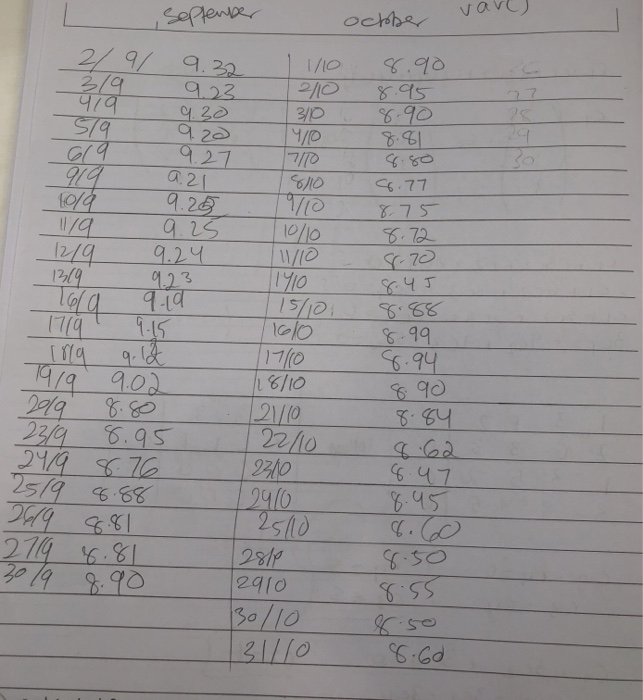 September october var()
2/9/ 9.32 1/10 8.90
3/9 9.23 2/10 8.95 27
4/9 9.30 3/10 8.90 28
5/9 9.20 4/10 8.81 29
6/9 9.27 7/10 8.80 30
9/9 9.21 8/10 8.77
10/9 9.25 9/10 8.75
11/9 9.25 10/10 8.72
12/9 9.24 11/10 8.70
13/9 9.23 14/10 8.45
16/9 9.19 15/10 8.88
17/9 9.15 16/10 8.99
18/9 9.12 17/10 8.94
19/9 9.02 18/10 8.90
20/9 8.80 21/10 8.84
23/9 8.95 22/10 8.62
24/9 8.76 23/10 8.47
25/9 8.88 24/10 8.45
26/9 8.81 25/10 8.60
27/9 8.81 28/10 8.50
30/9 8.90 29/10 8.55
30/10 8.50
31/10 8.60